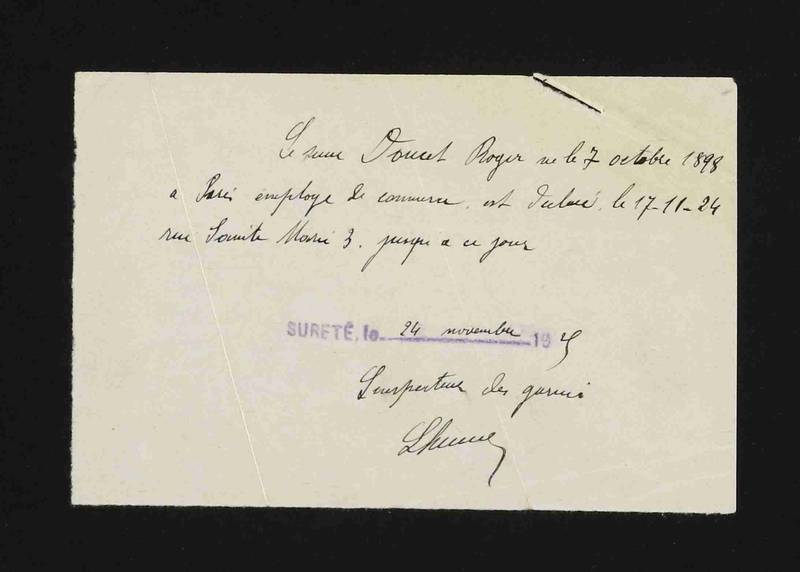 Le nommé Doucet Roger ne le 7 octobre 1898
a Paris employe de commerce, est déclaré, le 17-11-24
rue Sainte Marie 3. jusqu'a ce jour
SURETÉ, le 24 novembre 19
L'inspecteur des garnis